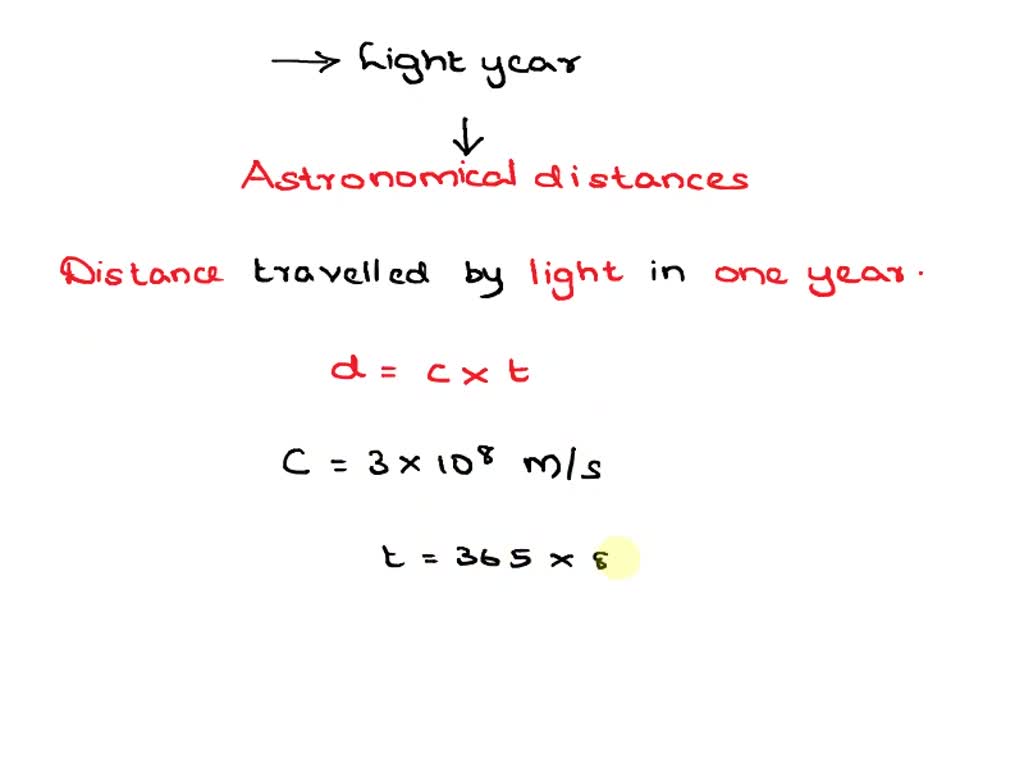 → Light year
↓
Astronomical distances
Distance travelled by light in one year.
d = c × t
C = 3 × 10⁸ m/s
t = 365 × 8